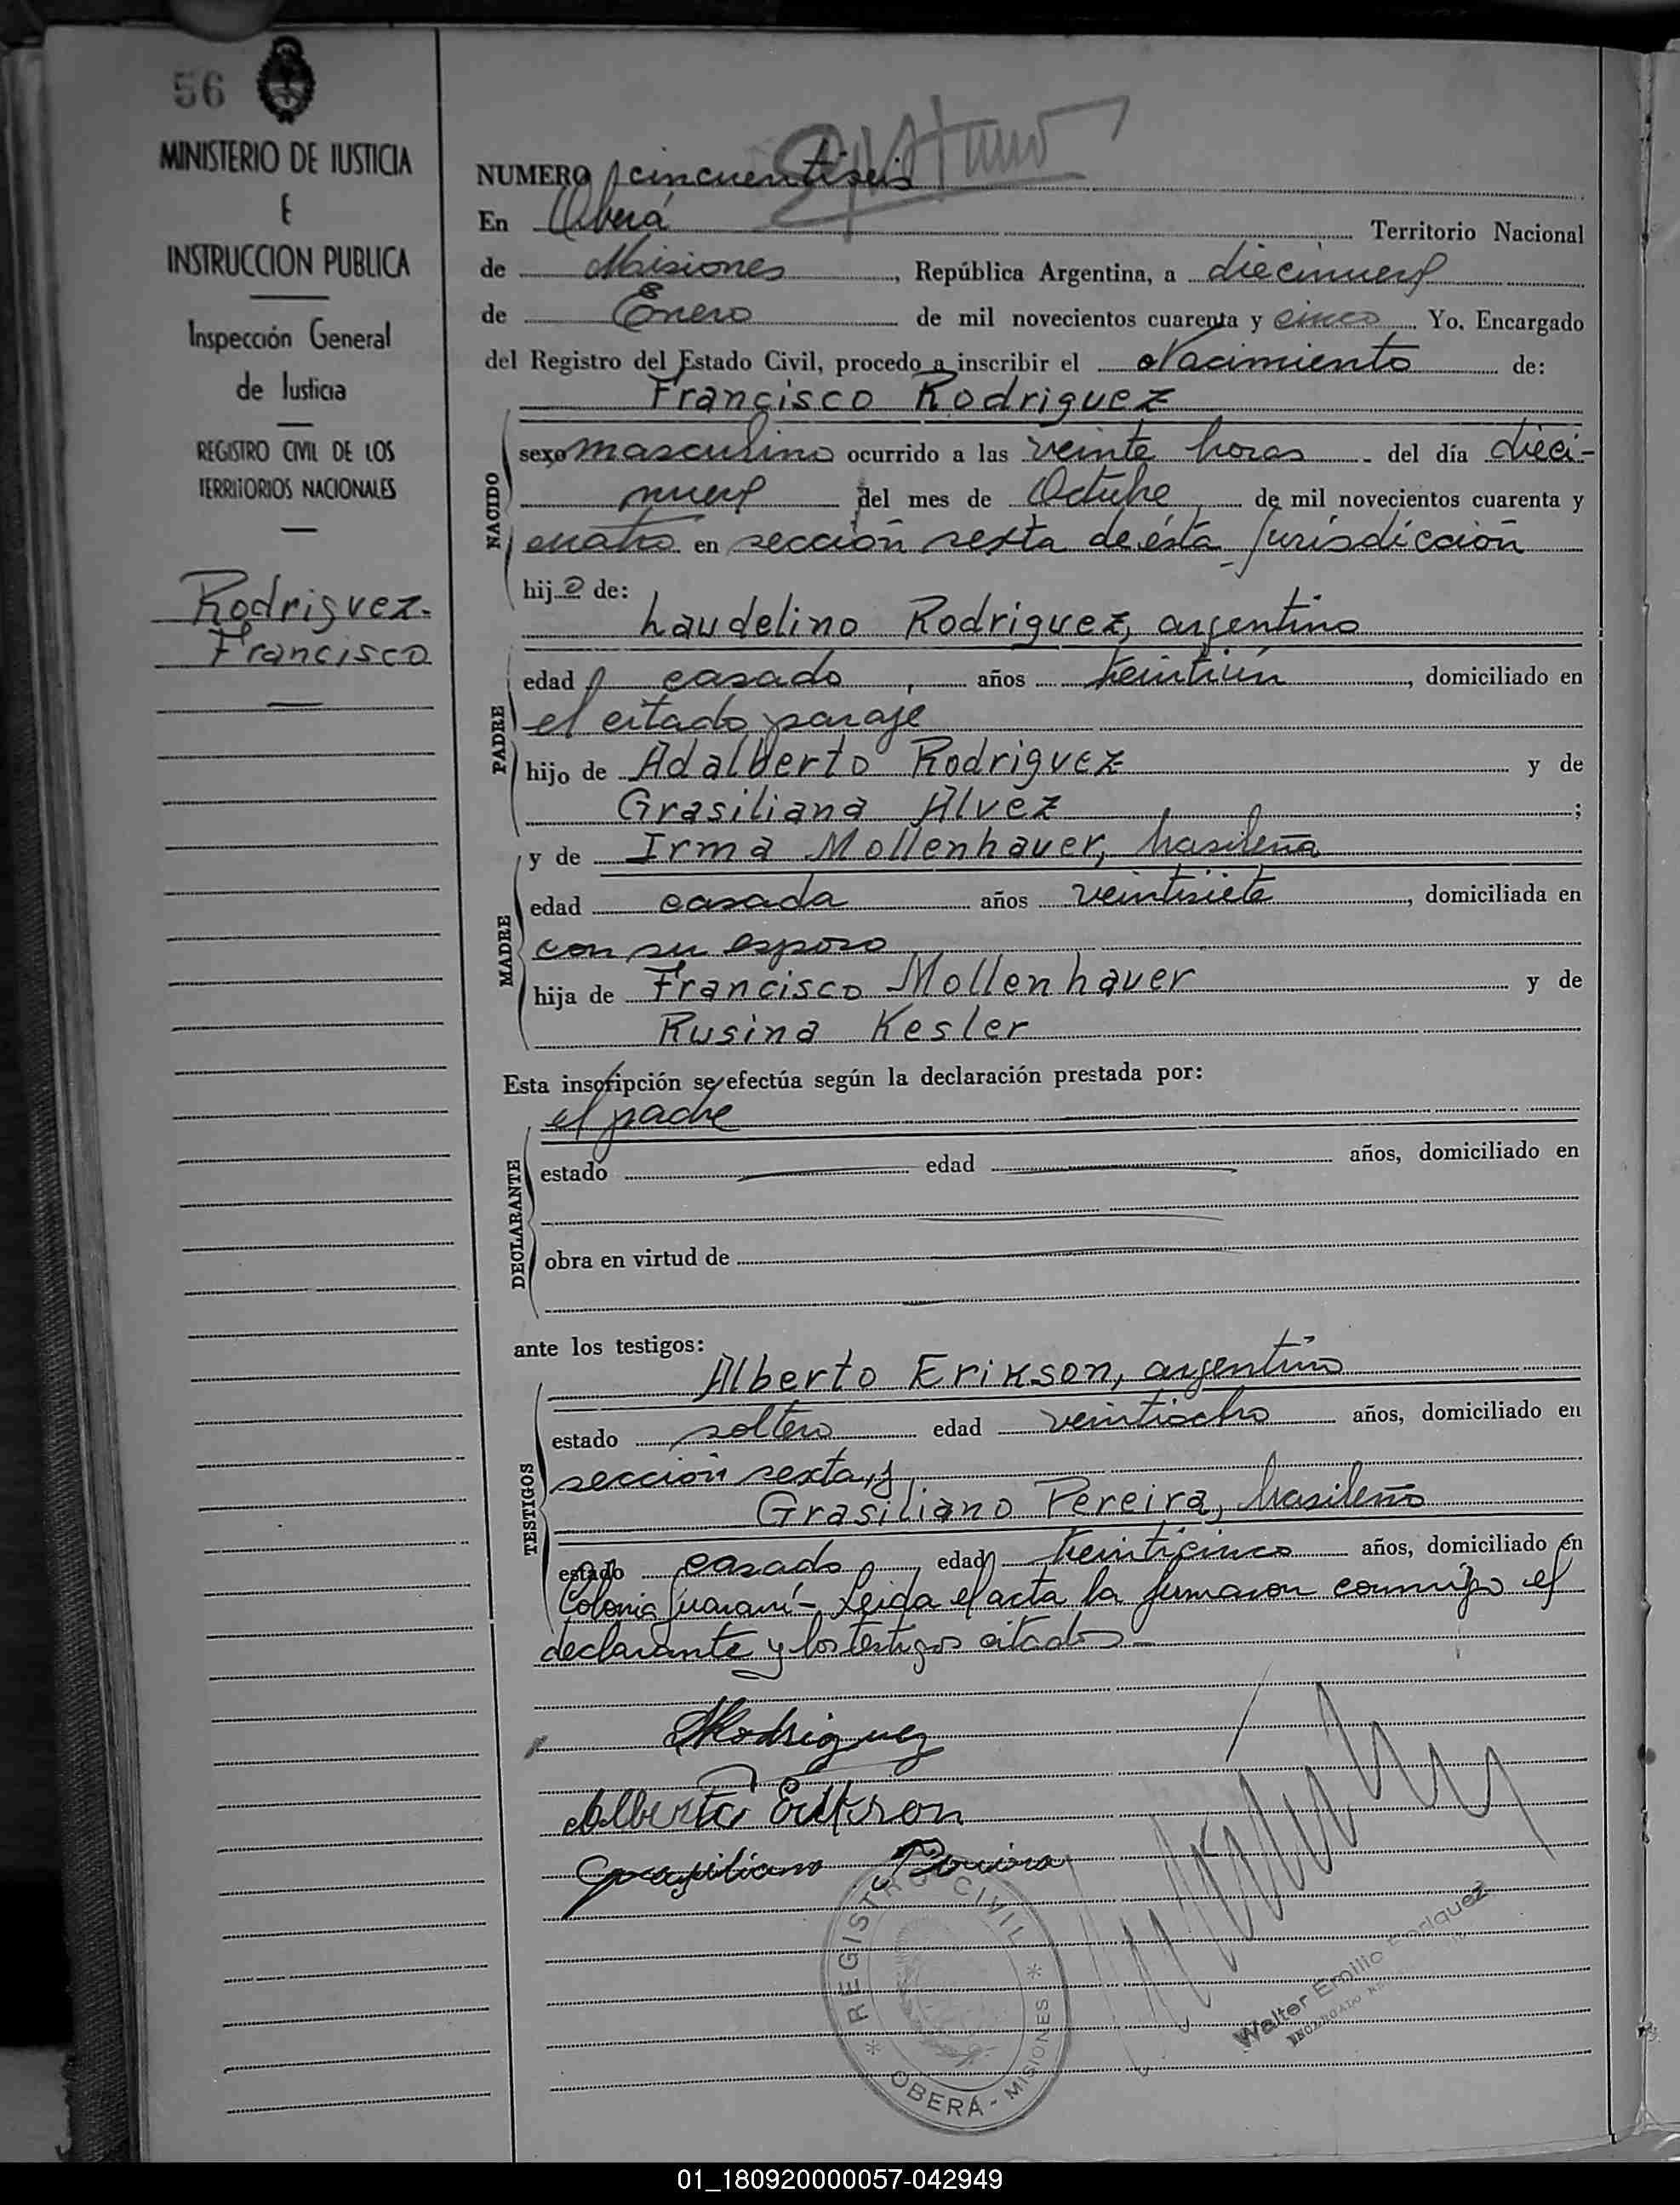 56
MINISTERIO DE JUSTICIA
E
INSTRUCCION PUBLICA
Inspección General
de Justicia
REGISTRO CIVIL DE LOS
TERRITORIOS NACIONALES
Rodriguez
Francisco
NUMERO cincuentiseis
En Oberá Territorio Nacional
de Misiones, República Argentina, a diecinueve
de Enero de mil novecientos cuarenta y cinco Yo. Encargado
del Registro del Estado Civil, procedo a inscribir el Nacimiento de:
Francisco Rodriguez
NACIDO
sexo masculino ocurrido a las veinte horas del día dieci-
nueve del mes de Octubre de mil novecientos cuarenta y
cuatro en sección sexta de ésta jurisdicción
hijo de:
Laudelino Rodriguez, argentino
PADRE
edad casado, años treintiún, domiciliado en
el citado paraje
hijo de Adalberto Rodriguez y de
Grasiliana Alvez;
MADRE
y de Irma Mollenhauer, brasileña
edad casada años veintisiete, domiciliada en
con su esposo
hija de Francisco Mollenhauer y de
Rusina Kesler
Esta inscripción se efectúa según la declaración prestada por:
el padre
DECLARANTE
estado edad años, domiciliado en
obra en virtud de
ante los testigos:
Alberto Erikson, argentino
TESTIGOS
estado soltero edad veintiocho años, domiciliado en
sección sexta, y
Grasiliano Pereira, brasileño
estado casado, edad treinticinco años, domiciliado en
Colonia Guaraní- Leida el acta la firmaron conmigo el
declarante y los testigos citados-
Rodriguez
Alberto Erikson
Grasiliano Pereira
REGISTRO CIVIL
* OBERÁ - MISIONES *
Walter Emilio Enriquez
ENCARGADO
01_180920000057-042949